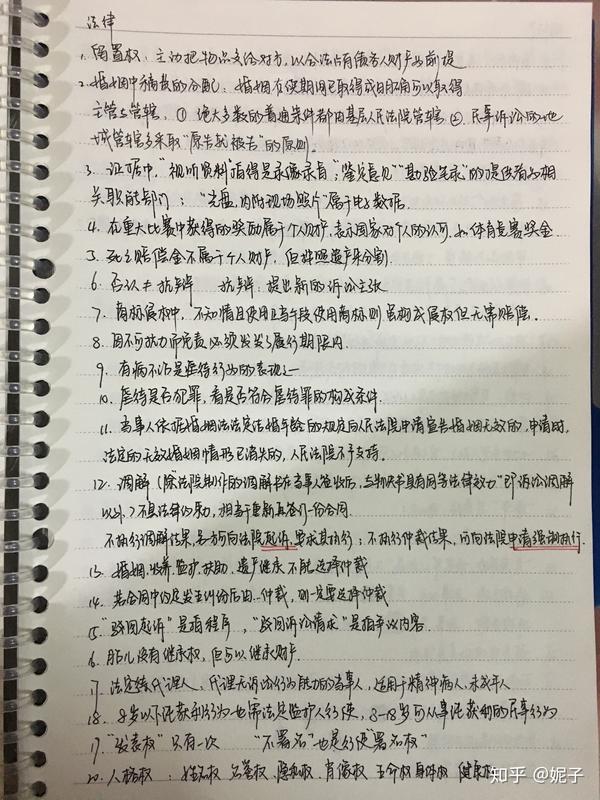 法律
1. 留置权：主动把物品交给对方，以合法占有债务人财产为前提
2. 婚姻中稿费的分配：婚姻存续期间已取得或明确可以取得
主管与管辖：① 绝大多数的普通案件都由基层人民法院管辖 ②. 民事诉讼的地
域管辖多采取“原告就被告”的原则.
3. 证据中，“视听资料”指得是录像录音；“鉴定意见”“勘验笔录”的提供者为相
关职能部门；“主盘内附现场照片”属于电子数据.
4. 在重大比赛中获得的奖励属于个人财产，表示国家对个人的认可，如体育竞赛奖金.
5. 死亡赔偿金不属于个人财产，但按照遗产来分割.
6. 否认≠抗辩 抗辩：提出新的诉讼主张
7. 商标侵权中，不知情且使用正当手段使用商标则虽构成侵权但无需赔偿.
8. 因不可抗力而免责必须发生于履行期限内.
9. 有病不治是虐待行为的表现之一
10. 虐待是否犯罪，看是否符合虐待罪的构成条件.
11. 当事人依据婚姻法法定结婚年龄的规定向人民法院申请宣告婚姻无效的，申请时，
法定的无效婚姻情形已消失的，人民法院不予支持.
12. 调解（除“法院制作的调解书在当事人签收后，与判决书具有同等法律效力”即诉讼调解
以外）不具法律约束力，相当于重新再签订一份合同.
不执行调解结果，各方可向法院起诉，要求其执行；不执行仲裁结果，可向法院申请强制执行.
13. 婚姻.收养.监护.扶助.遗产继承不能选择仲裁
14. 若合同中约定发生纠纷后由..仲裁，则一定要选择仲裁
15. “驳回起诉”是指程序，“驳回诉讼请求”是指争议内容.
16. 胎儿没有继承权，但可以继承财产.
17. 法定代理人：代理无诉讼行为能力的当事人，适用于精神病人、未成年人
18. 8岁以下纯获利行为也需法定监护人行使，8-18岁可从事纯获利的民事行为
19. “发表权”只有一次 “不署名”也是行使“署名权”
20. 人格权：姓名权 名誉权 隐私权 肖像权 生命权 身体权 健康权
知乎 @妮子